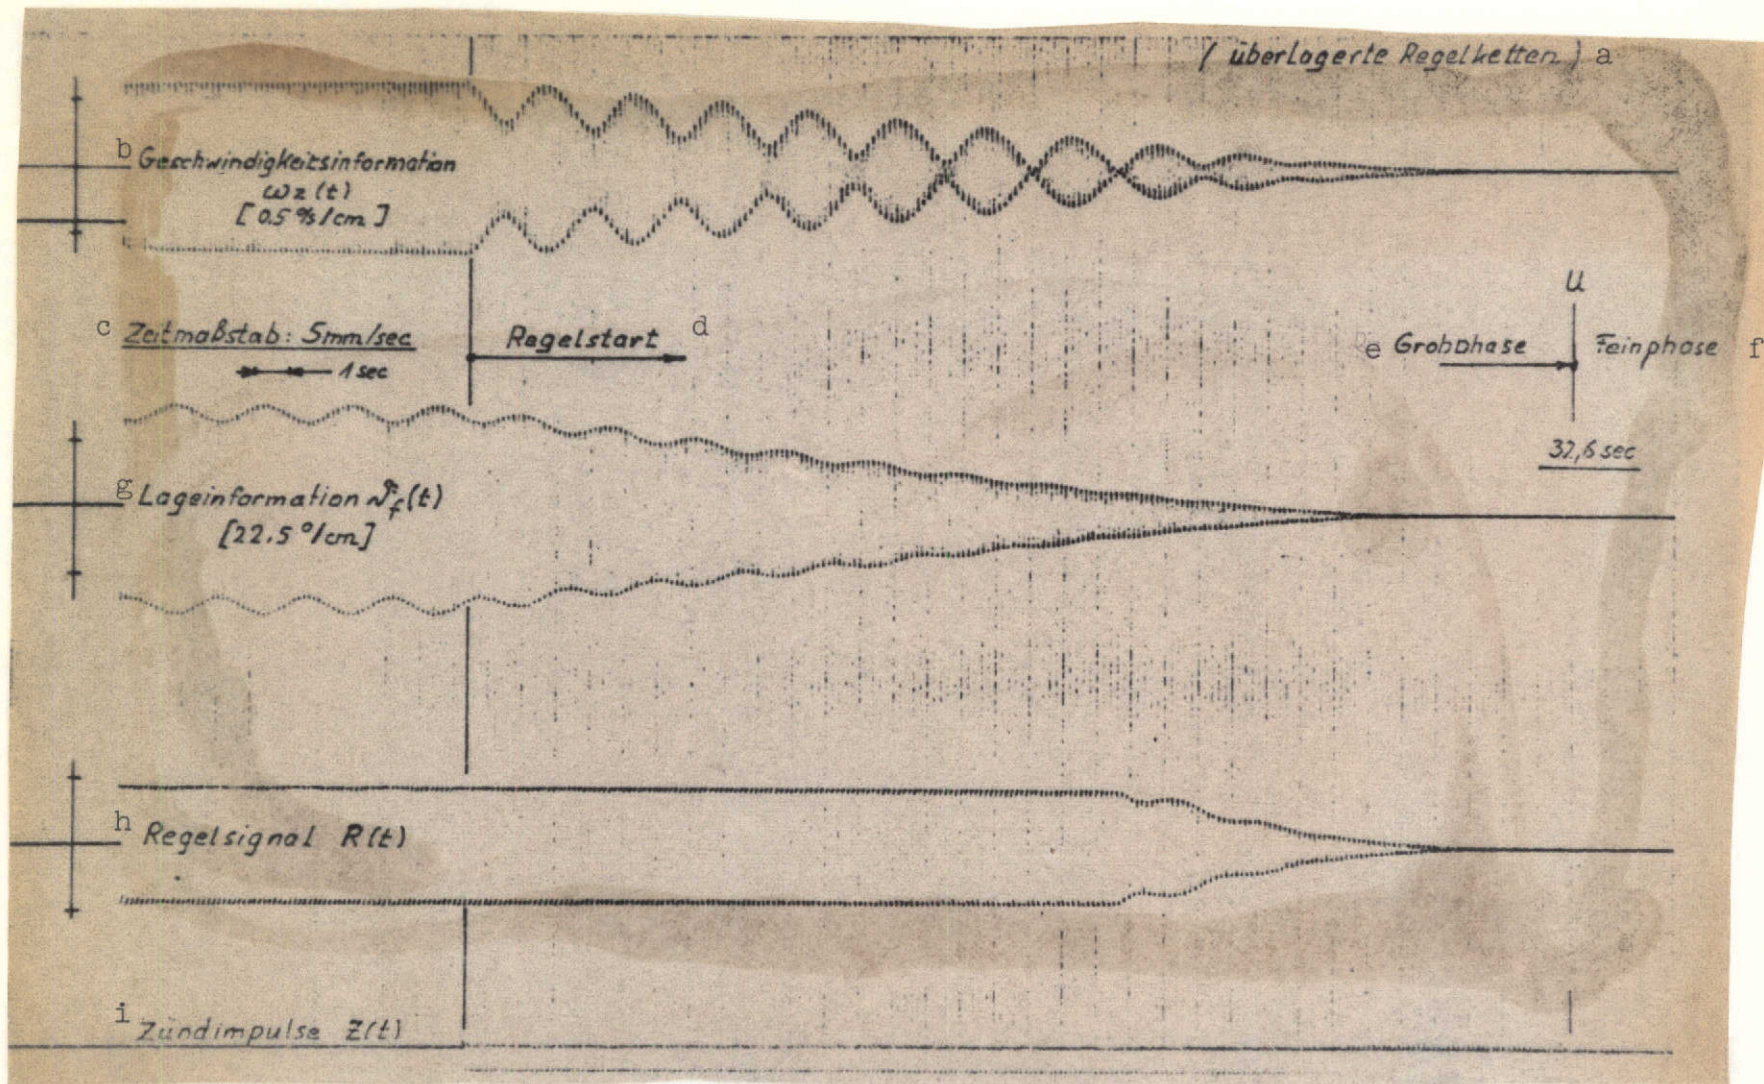 (überlagerte Regelketten) a
b Geschwindigkeitsinformation
ωz(t)
[0.5 °/s/cm]
U
c Zeitmaßstab: 5mm/sec
Regelstart d
e Grobphase
Feinphase f
1 sec
32,6 sec
g Lageinformation ϑf(t)
[22.5 °/cm]
h Regelsignal R(t)
i Zündimpulse Z(t)